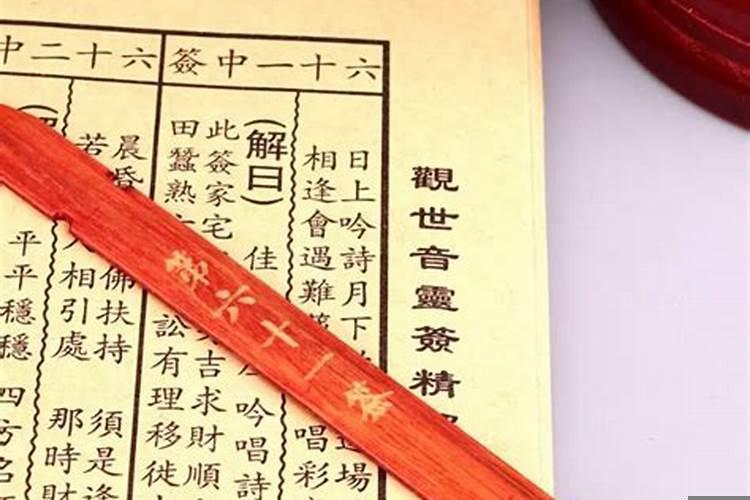 觀世音靈簽精
六十一中簽
日上吟詩月下
場
相逢會遇難
唱彩
(解曰)
佳
吟唱詩
此簽家宅
吉求財順
田蠶熟
訟有理移徒
六十二中
晨昏
佛扶持
須是逢
若
人相引處
那時財
平平穩穩
四方名
第六十一簽